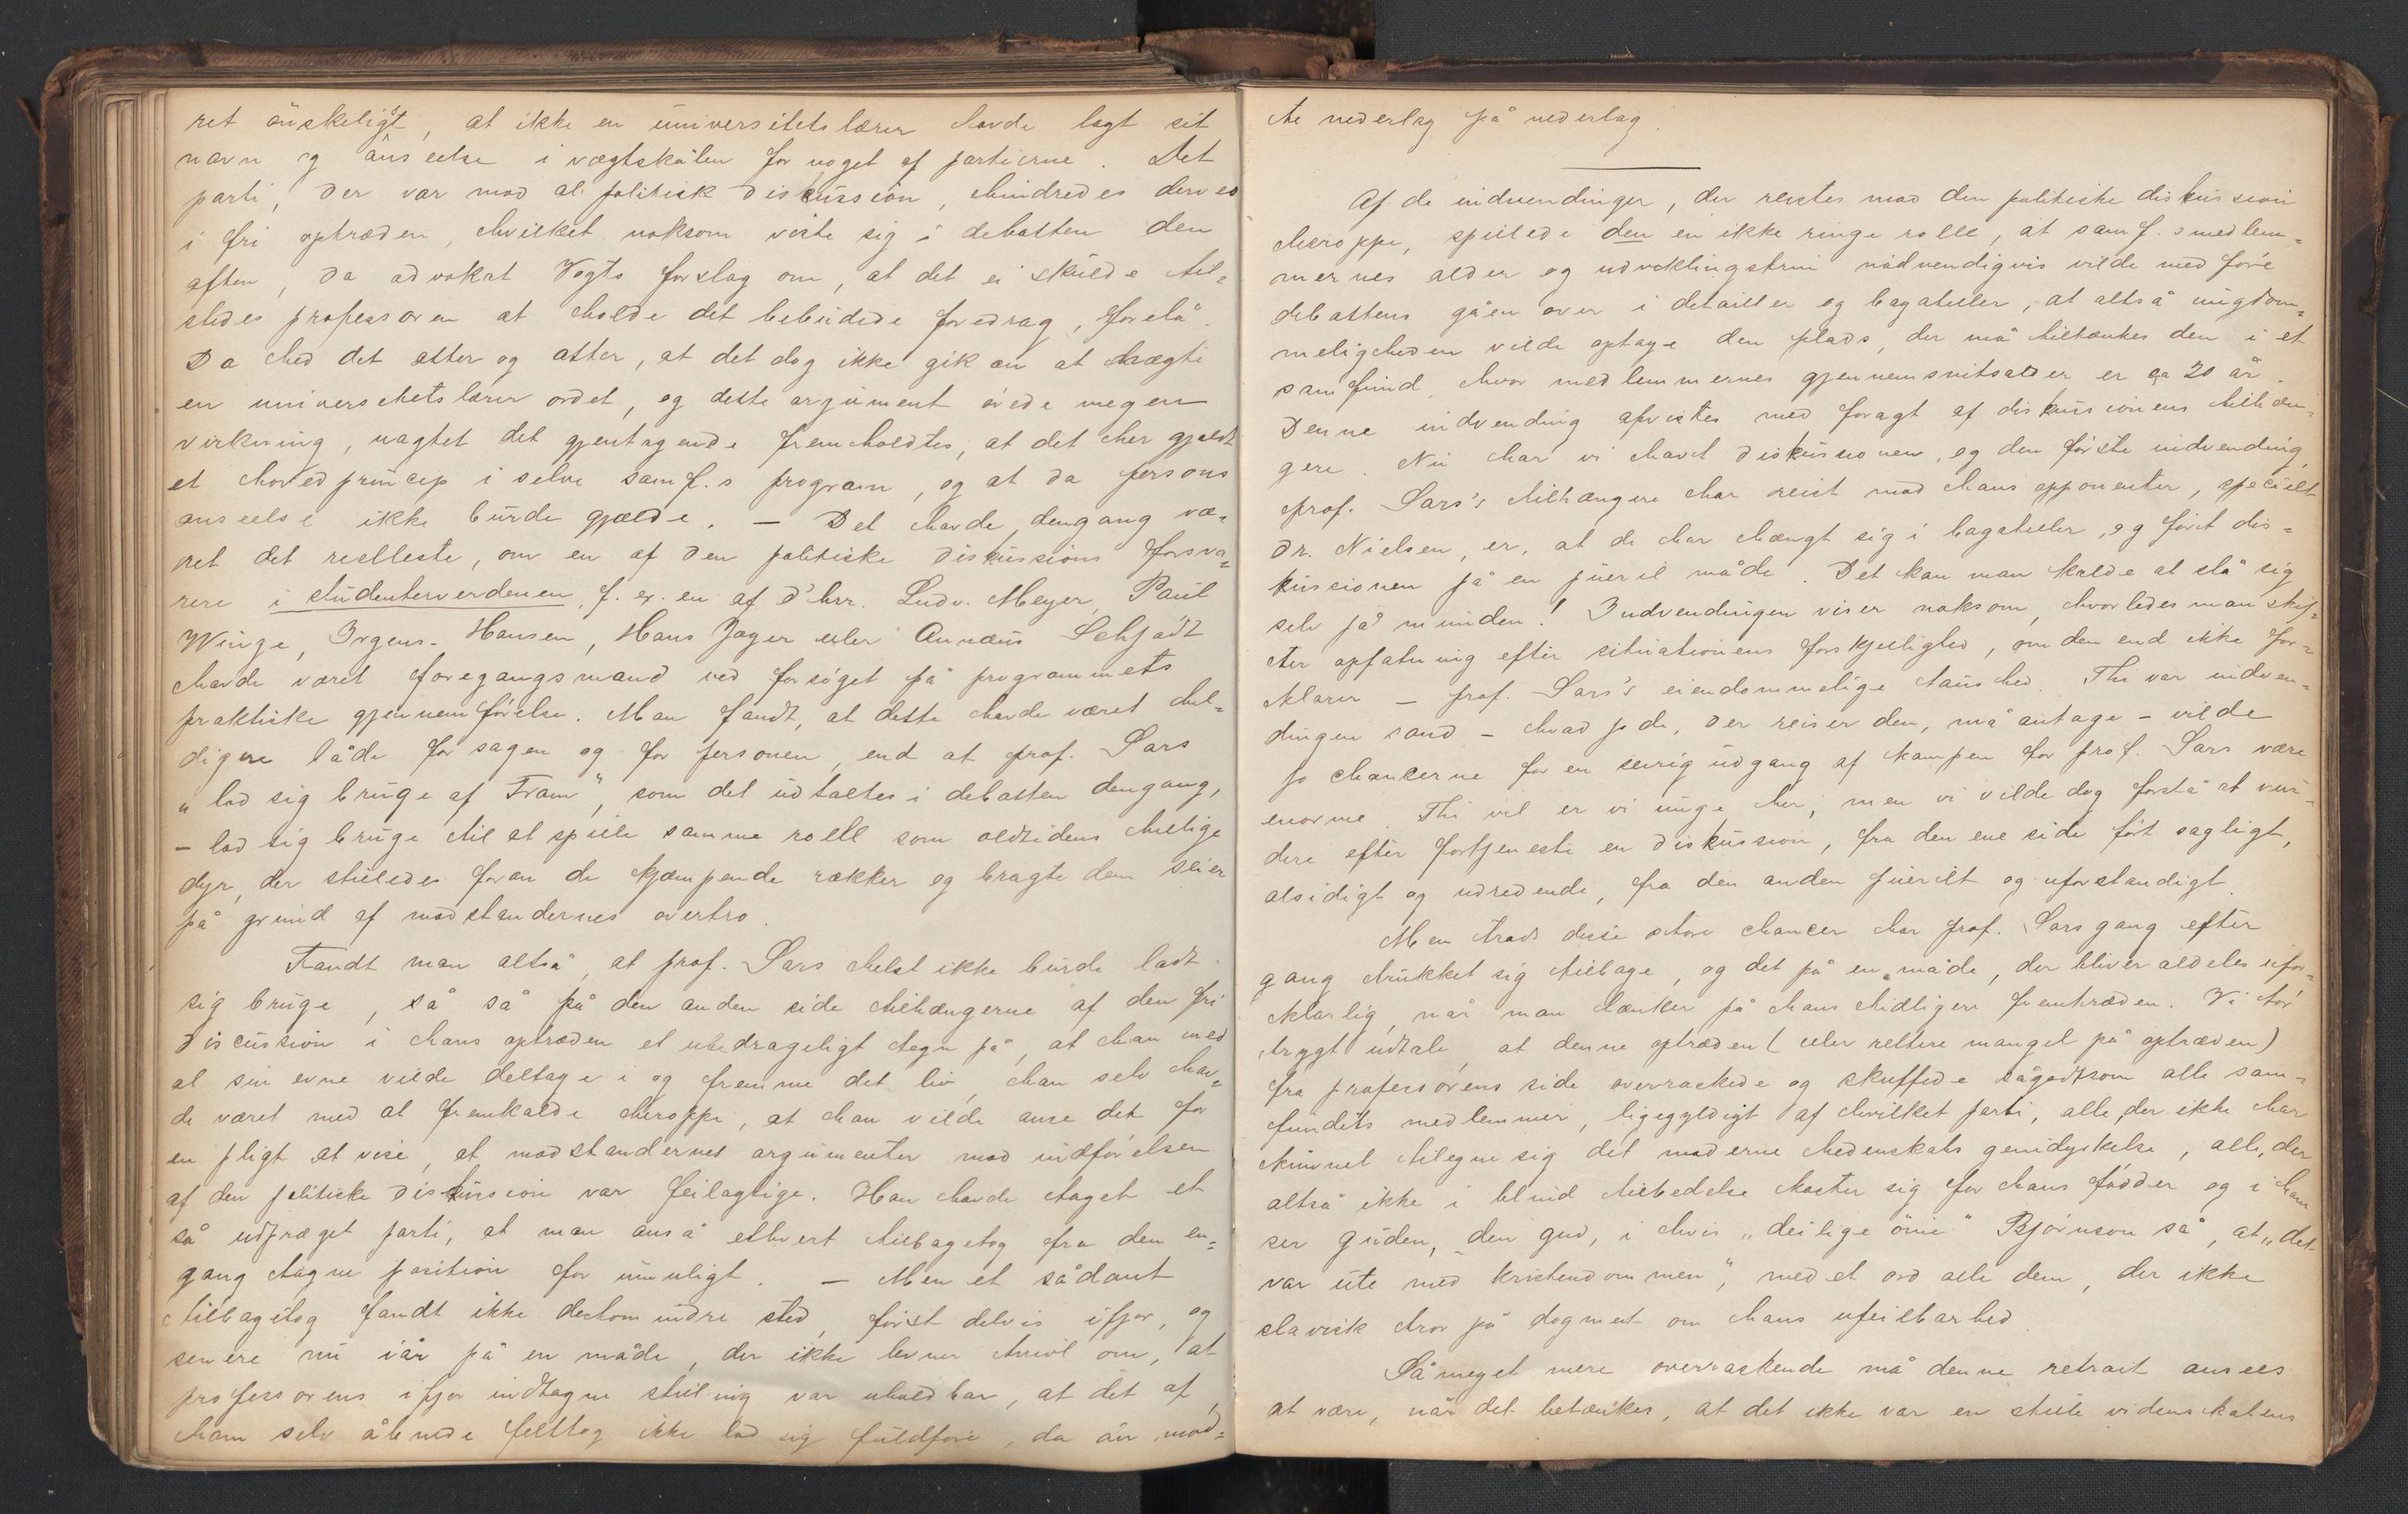 ret ønskeligt, at ikke en universitetslærer havde lagt sit
navn og anseelse i vægtskålen for noget af partierne. Det
parti, der var mod al politisk diskussion, hindredes derved
i fri optræden, hvilket noksom viste sig i debatten den
aften, da advokat Vogts forslag om, at det ei skulde til=
stedes professoren at holde det bebudede foredrag, forelå.
Da hed det atter og atter, at det dog ikke gik an at nægte
en universitetslærer ordet, og dette argument øvede megen
virkning, uagtet det gjentagende fremholdtes, at det her gjaldt
et hovedprincip i selve samf.s program, og at da persons
anseelse ikke burde gjælde. — Det havde dengang væ=
ret det reelleste, om en af den politiske diskussions forsva=
rere i studenterverdenen, f. ex. en af d'hrr. Ludv. Meyer, Paul
Winge, Irgens-Hansen, Hans Jæger eller Annæus Schjødt
havde været foregangsmand ved forsøget på programmets
praktiske gjennemførelse. Man fandt, at dette havde været hel=
digere både for sagen og for personen, end at prof. Sars
"lod sig bruge af Fram", som det udtaltes i debatten dengang,
— lod sig bruge til at spille samme rolle som oldtidens hellige
dyr, der stilledes foran de kjæmpende rækker og bragte dem seier
på grund af modstandernes overtro.
Fandt man altså, at prof. Sars helst ikke burde ladt
sig bruge, så så på den anden side tilhængerne af den fri
discussion i hans optræden et ubedrageligt tegn på, at han med
al sin evne vilde deltage i og fremme det liv, han selv hav=
de været med at fremkalde heroppe, at han vilde anse det for
en pligt at vise, at modstandernes argumenter mod indførelsen
af den politiske diskussion var feilagtige. Han havde taget et
så udpræget parti, at man anså ethvert tilbagetog fra den en=
gang tagne position for umuligt. — Men et sådant
tilbagetog fandt ikke destomindre sted, først delvis ifjor, og
senere nu iår på en måde, der ikke levner tvivl om, at
professorens ifjor indtagne stilling var uholdbar, at det af
ham selv åbnede felttog ikke lod sig fuldføre, da en mod=
te nederlag på nederlag.
Af de indvendinger, der reistes mod den politiske diskussion
heroppe, spillede den en ikke ringe rolle, at samf.s medlem=
mernes alder og udviklingstrin nødvendigvis vilde medføre
debattens gåen over i detailler og bagateller, at altså ungdom=
meligheden vilde optage den plads, der må tiltænkes den i et
samfund, hvor medlemmernes gjennemsnitsalder er ca 20 år.
Denne indvending afvistes med foragt af diskussionens tilhæn=
gere. Nu har vi havt diskussionen, og den første indvending,
prof. Sars's tilhængere har reist mod hans opponenter, specielt
dr. Nielsen, er, at de har hængt sig i bagateller, og ført dis=
kussionen på en pueril måde. Det kan man kalde at slå sig
selv på munden! Indvendingen viser noksom, hvorledes man skif=
ter opfatning efter situationens forskjellighed, om den end ikke for=
klarer — prof. Sars's eiendommelige taushed. Thi var indven=
dingen sand — hvad jo de, der reiser den, må antage — vilde
jo chancerne for en seirrig udgang af kampen for prof. Sars være
enorme. Thi vel er vi unge her, men vi vilde dog forstå at vur=
dere efter fortjeneste en diskussion, fra den ene side ført sagligt,
alsidigt og udredende, fra den anden puerilt og uforstandigt.
Men trods disse store chancer har prof. Sars gang efter
gang trukket sig tilbage, og det på en måde, der bliver aldeles ufor=
klarlig, når man tænker på hans tidligere fremtræden. Vi tør
trygt udtale, at denne optræden (eller rettere mangel på optræden)
fra professorens side overraskede og skuffede sågodtsom alle sam=
fundets medlemmer, ligegyldigt af hvilket parti, alle, der ikke har
kunnet tilegne sig det moderne hedenskabs genidyrkelse, alle, der
altså ikke i blind tilbedelse kaster sig for hans fødder og i ham
ser guden, den gud, i hvis "deilige öine" Bjørnson så, at "det
var ute med kristendommen", med et ord alle dem, der ikke
slavisk tror på dogmet om hans ufeilbarhed.
Såmeget mere overraskende må denne retrait ansees
at være, når det betænkes, at det ikke var en stille videnskabens